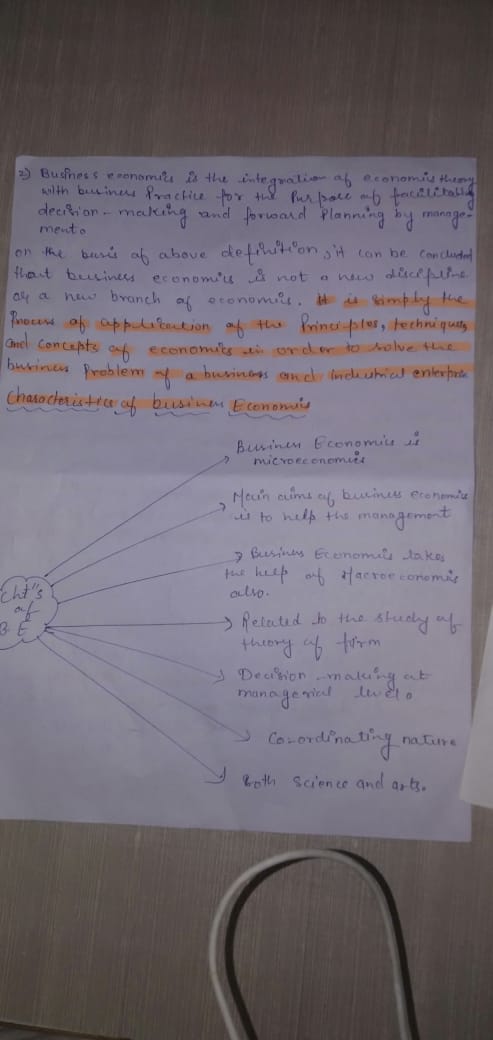 2) Business economics is the integration of economic theory
with business Practice for the Purpose of facilitating
decision-making and forward Planning by manage-
ment.
on the basis of above definition, it can be concluded
that business economics is not a new discipline
or a new branch of economics. It is simply the
Process of application of the Principles, techniques,
and concepts of economics in order to solve the
business Problem of a business and industrial enterprise
Characteristics of business Economics
Cht"s
of
B E
Business Economics is
microeconomics
Main aims of business economics
is to help the management
Business Economics takes
the help of Macroeconomics
also.
Related to the study of
theory of firm
Decision-making at
managerial level.
Co-ordinating nature
Both Science and arts.